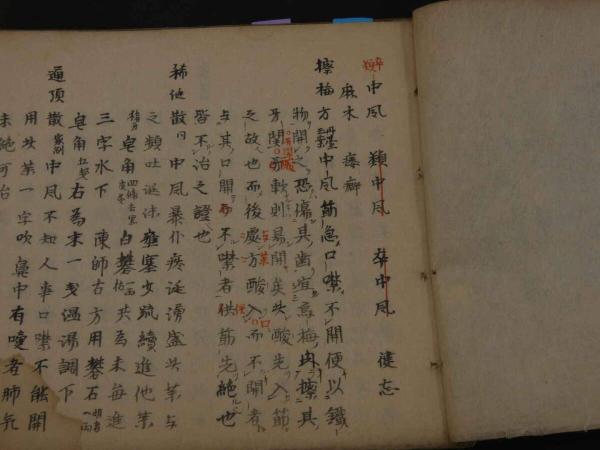 中風 類中風 卒中風 健忘
麻木 痿癖
擦梅方 中風筋急口噤不開便以鐵
物開之恐傷其齒宜烏梅肉擦其
牙關 軟則易開矣 酸先入筋
之故也而後處方酸入而不開者
与其口開而不噤者 筋先絶也
皆不治之證也
稀涎散 中風暴仆痰涎湧盛 薬与
之類吐涎沫 塞 疏續進他薬
皂角 白礬 共為末每進
三字水下 陳師古方用礬石
皂角 右為末一 温湯調下
通頂散 中風不知人事口噤不能開
用此薬一字吹鼻中有嚏者肺気
未絶可治